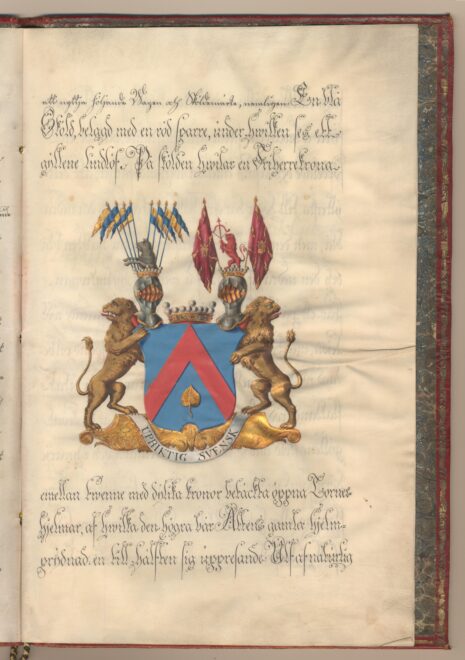 att nyttja följande Wapen och Sköldemärke, nemligen: En blå
Sköld, belgad med en röd sparre, under hwilken ses ett
gyllene lindlöf. På skölden hwilar en Friherrekrona
UPRIKTIG SVENSK
emellan twenne med dylika kronor betäckta öpna Torner-
hjelmar, af hwilka den högra bär Ättens gamla hjelm-
prydnad, en till hälften sig uppresande Ulf af naturlig